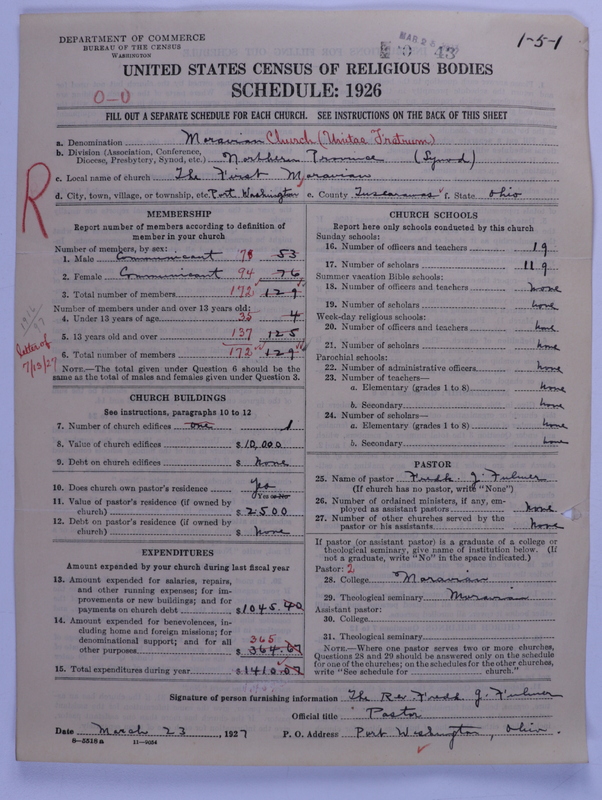 DEPARTMENT OF COMMERCE
BUREAU OF THE CENSUS
WASHINGTON
MAR 25
43
1-5-1
UNITED STATES CENSUS OF RELIGIOUS BODIES
SCHEDULE: 1926
0-0
FILL OUT A SEPARATE SCHEDULE FOR EACH CHURCH. SEE INSTRUCTIONS ON THE BACK OF THIS SHEET
a. Denomination Moravian Church (Unitas Fratrum)
b. Division (Association, Conference, Diocese, Presbytery, Synod, etc.) Northern Province (Synod)
c. Local name of church The First Moravian
d. City, town, village, or township, etc. Port Washington e. County Tuscarawas f. State Ohio
R
MEMBERSHIP
Report number of members according to definition of
member in your church
Number of members, by sex:
1. Male Communicant 78 53
2. Female Communicant 94 76
3. Total number of members 172 129
Number of members under and over 13 years old:
4. Under 13 years of age 35 4
5. 13 years old and over 137 125
6. Total number of members 172 129
letter of
7/13/27
NOTE.—The total given under Question 6 should be the
same as the total of males and females given under Question 3.
CHURCH BUILDINGS
See instructions, paragraphs 10 to 12
7. Number of church edifices one 1
8. Value of church edifices $10,000
9. Debt on church edifices $ None
10. Does church own pastor's residence Yes
Yes or No
11. Value of pastor's residence (if owned by
church) $2500
12. Debt on pastor's residence (if owned by
church) $ None
EXPENDITURES
Amount expended by your church during last fiscal year
13. Amount expended for salaries, repairs,
and other running expenses; for im-
provements or new buildings; and for
payments on church debt $1045.40
14. Amount expended for benevolences, in-
cluding home and foreign missions; for
denominational support; and for all
other purposes 365 $364.67
15. Total expenditures during year $1410.07
CHURCH SCHOOLS
Report here only schools conducted by this church
Sunday schools:
16. Number of officers and teachers 19
17. Number of scholars 119
Summer vacation Bible schools:
18. Number of officers and teachers None
19. Number of scholars None
Week-day religious schools:
20. Number of officers and teachers None
21. Number of scholars None
Parochial schools:
22. Number of administrative officers None
23. Number of teachers—
a. Elementary (grades 1 to 8) None
b. Secondary None
24. Number of scholars—
a. Elementary (grades 1 to 8) None
b. Secondary None
PASTOR
25. Name of pastor Fredk. J. Fulmer
(If church has no pastor, write "None")
26. Number of ordained ministers, if any, em-
ployed as assistant pastors None
27. Number of other churches served by the
pastor or his assistants None
If pastor (or assistant pastor) is a graduate of a college or
theological seminary, give name of institution below. (If
not a graduate, write "No" in the space indicated.)
Pastor: 2
28. College Moravian
29. Theological seminary Moravian
Assistant pastor:
30. College
31. Theological seminary
NOTE.—Where one pastor serves two or more churches,
Questions 28 and 29 should be answered only on the schedule
for one of the churches; on the schedules for the other churches,
write "See schedule for church."
Signature of person furnishing information The Rev. Fredk. J. Fulmer
Official title Pastor
Date March 23, 1927 P. O. Address Port Washington, Ohio.
8-5518a 11-9054